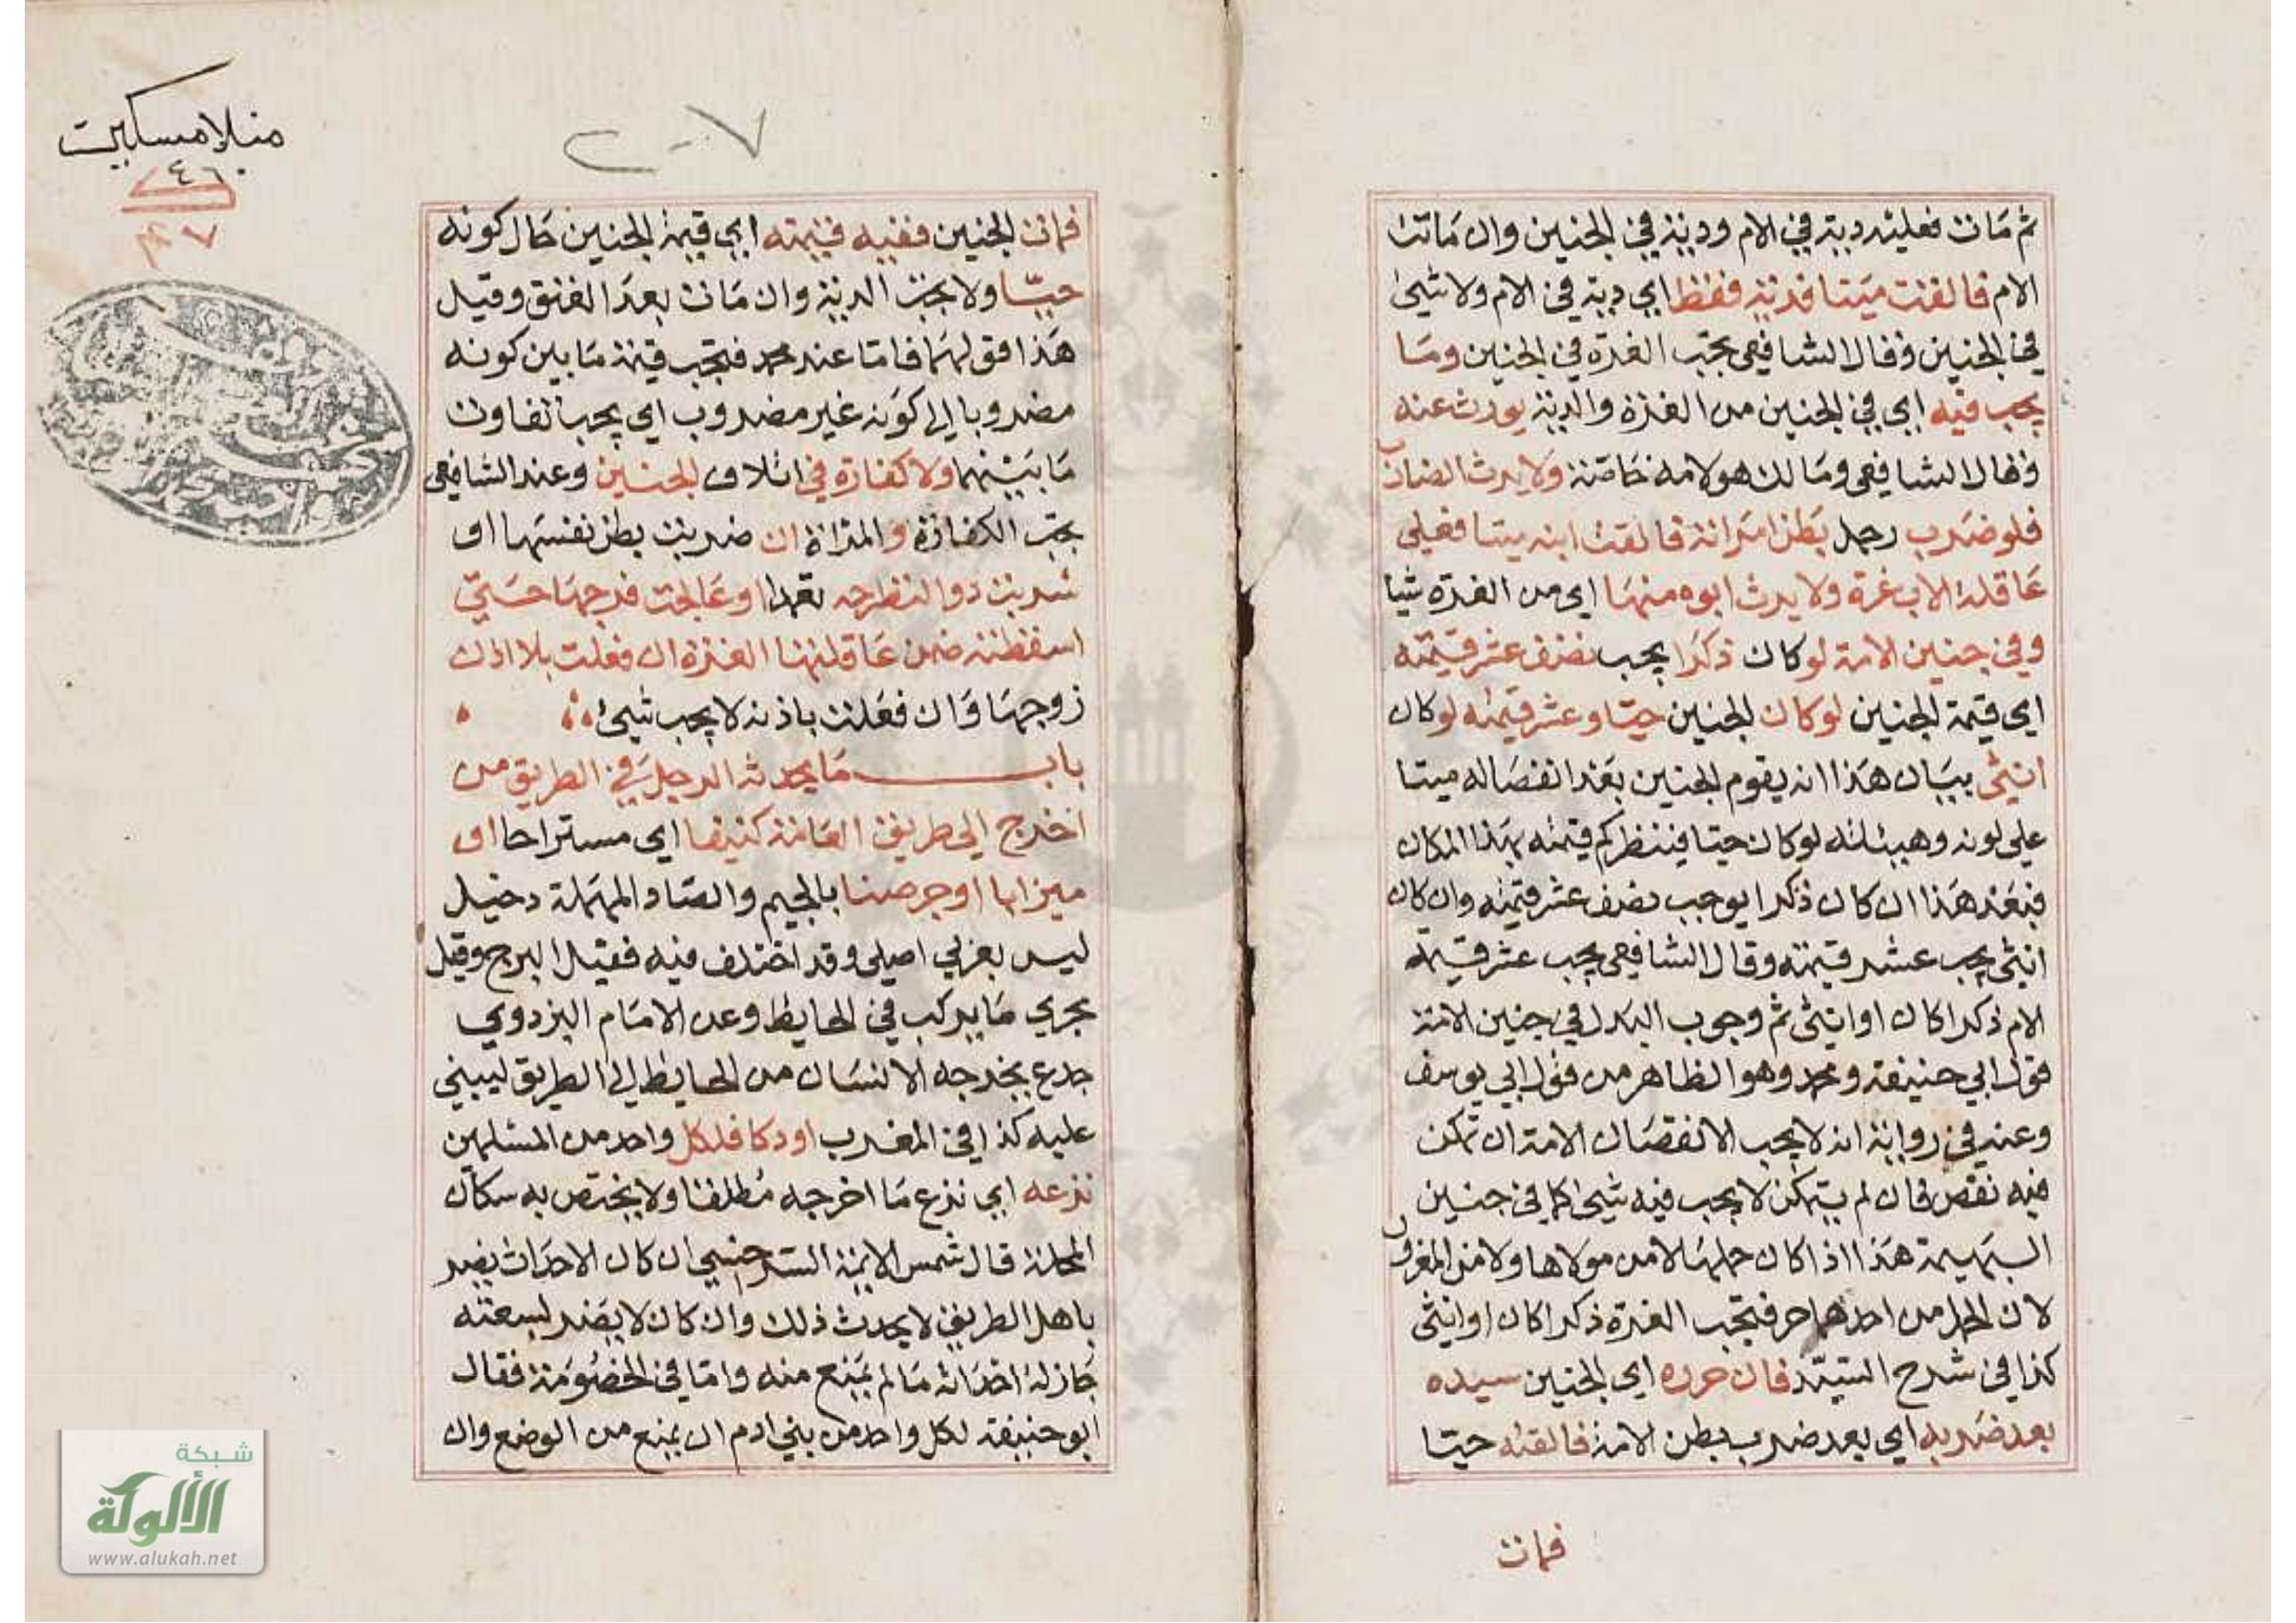 ثم مات فعليه دية في الام ودية في الجنين وان ماتت
الام فالقت ميتا فدية فقط اي دية في الام ولا شيئ
في الجنين وقال الشافعي تجب الغرة في الجنين وما
يجب فيه اي في الجنين من الغرة والدية يورث عنه
وقال الشافعي ومالك هو لامه خاصة ولا يرث الضارب
فلو ضرب رجل بطن امراته فالقت ابنه ميتا فعلي
عاقلة الاب غرة ولا يرث ابوه منها اي من الغرة شيا
وفي جنين الامة لو كان ذكرا يجب نصف عشر قيمته
اي قيمة الجنين لو كان الجنين حيا وعشر قيمته لو كان
انثي بيان هذا انه يقوم الجنين بعد انفصاله ميتا
علي لونه وهيئته لو كان حيا فينظر كم قيمته بهذا المكان
فبعد هذا ان كان ذكرا يوجب نصف عشر قيمته وان كان
انثي يجب عشر قيمته وقال الشافعي يجب عشر قيمة
الام ذكرا كان او انثي ثم وجوب البدل في جنين الامة
قول ابي حنيفة ومحمد وهو الظاهر من قول ابي يوسف
وعنه في رواية انه لا يجب الا نقصان الامة ان تمكن
فيه نقص فان لم يتمكن لا يجب فيه شيئ كما في جنين
البهيمة هذا اذا كان حملها لا من مولاها ولا من المغرور
لان الحمل من احدهما حر فتجب الغرة ذكرا كان او انثي
كذا في شرح السيد فان حرره اي الجنين سيده
بعد ضربه اي بعد ضرب بطن الامة فالقته حيا
فمات
منلا مسكين
٤٦٠
٢٠٧
فمات الجنين ففيه قيمته اي قيمة الجنين حال كونه
حيا ولا تجب الدية وان مات بعد العتق وقيل
هذا قولهما فاما عند محمد فتجب قيمة ما بين كونه
مضروبا الي كونه غير مضروب اي يجب تفاوت
ما بينهما ولا كفارة في اتلاف الجنين وعند الشافعي
تجب الكفارة والمراة ان ضربت بطن نفسها او
شربت دوا لتطرحه تعمدا او عالجت فرجها حتي
اسقطته ضمن عاقلتها الغرة ان فعلت بلا اذن
زوجها وان فعلت باذنه لا يجب شيئ
باب ما يحدث الرجل في الطريق من
اخرج الي طريق العامة كنيفا اي مستراحا او
ميزابا او جرصنا بالجيم والصاد المهملة دخيل
ليس بعربي اصلي وقد اختلف فيه فقيل البرج وقيل
مجري ما يركب في الحايط وعن الامام البزدوي
جدع يخرجه الانسان من الحايط الي الطريق ليبني
عليه كذا في المغرب او دكا فلكل واحد من المسلمين
نزعه اي نزع ما اخرجه مطلقا ولا يختص به سكان
المحلة قال شمس الائمة السرخسي ان كان الاحداث يضر
باهل الطريق لا يحدث ذلك وان كان لا يضر لسعته
جاز له احداثه ما لم يمنع منه واما في الخصومة فقال
ابو حنيفة لكل واحد من بني ادم ان يمنع من الوضع وان
شبكة
الألوكة
www.alukah.net